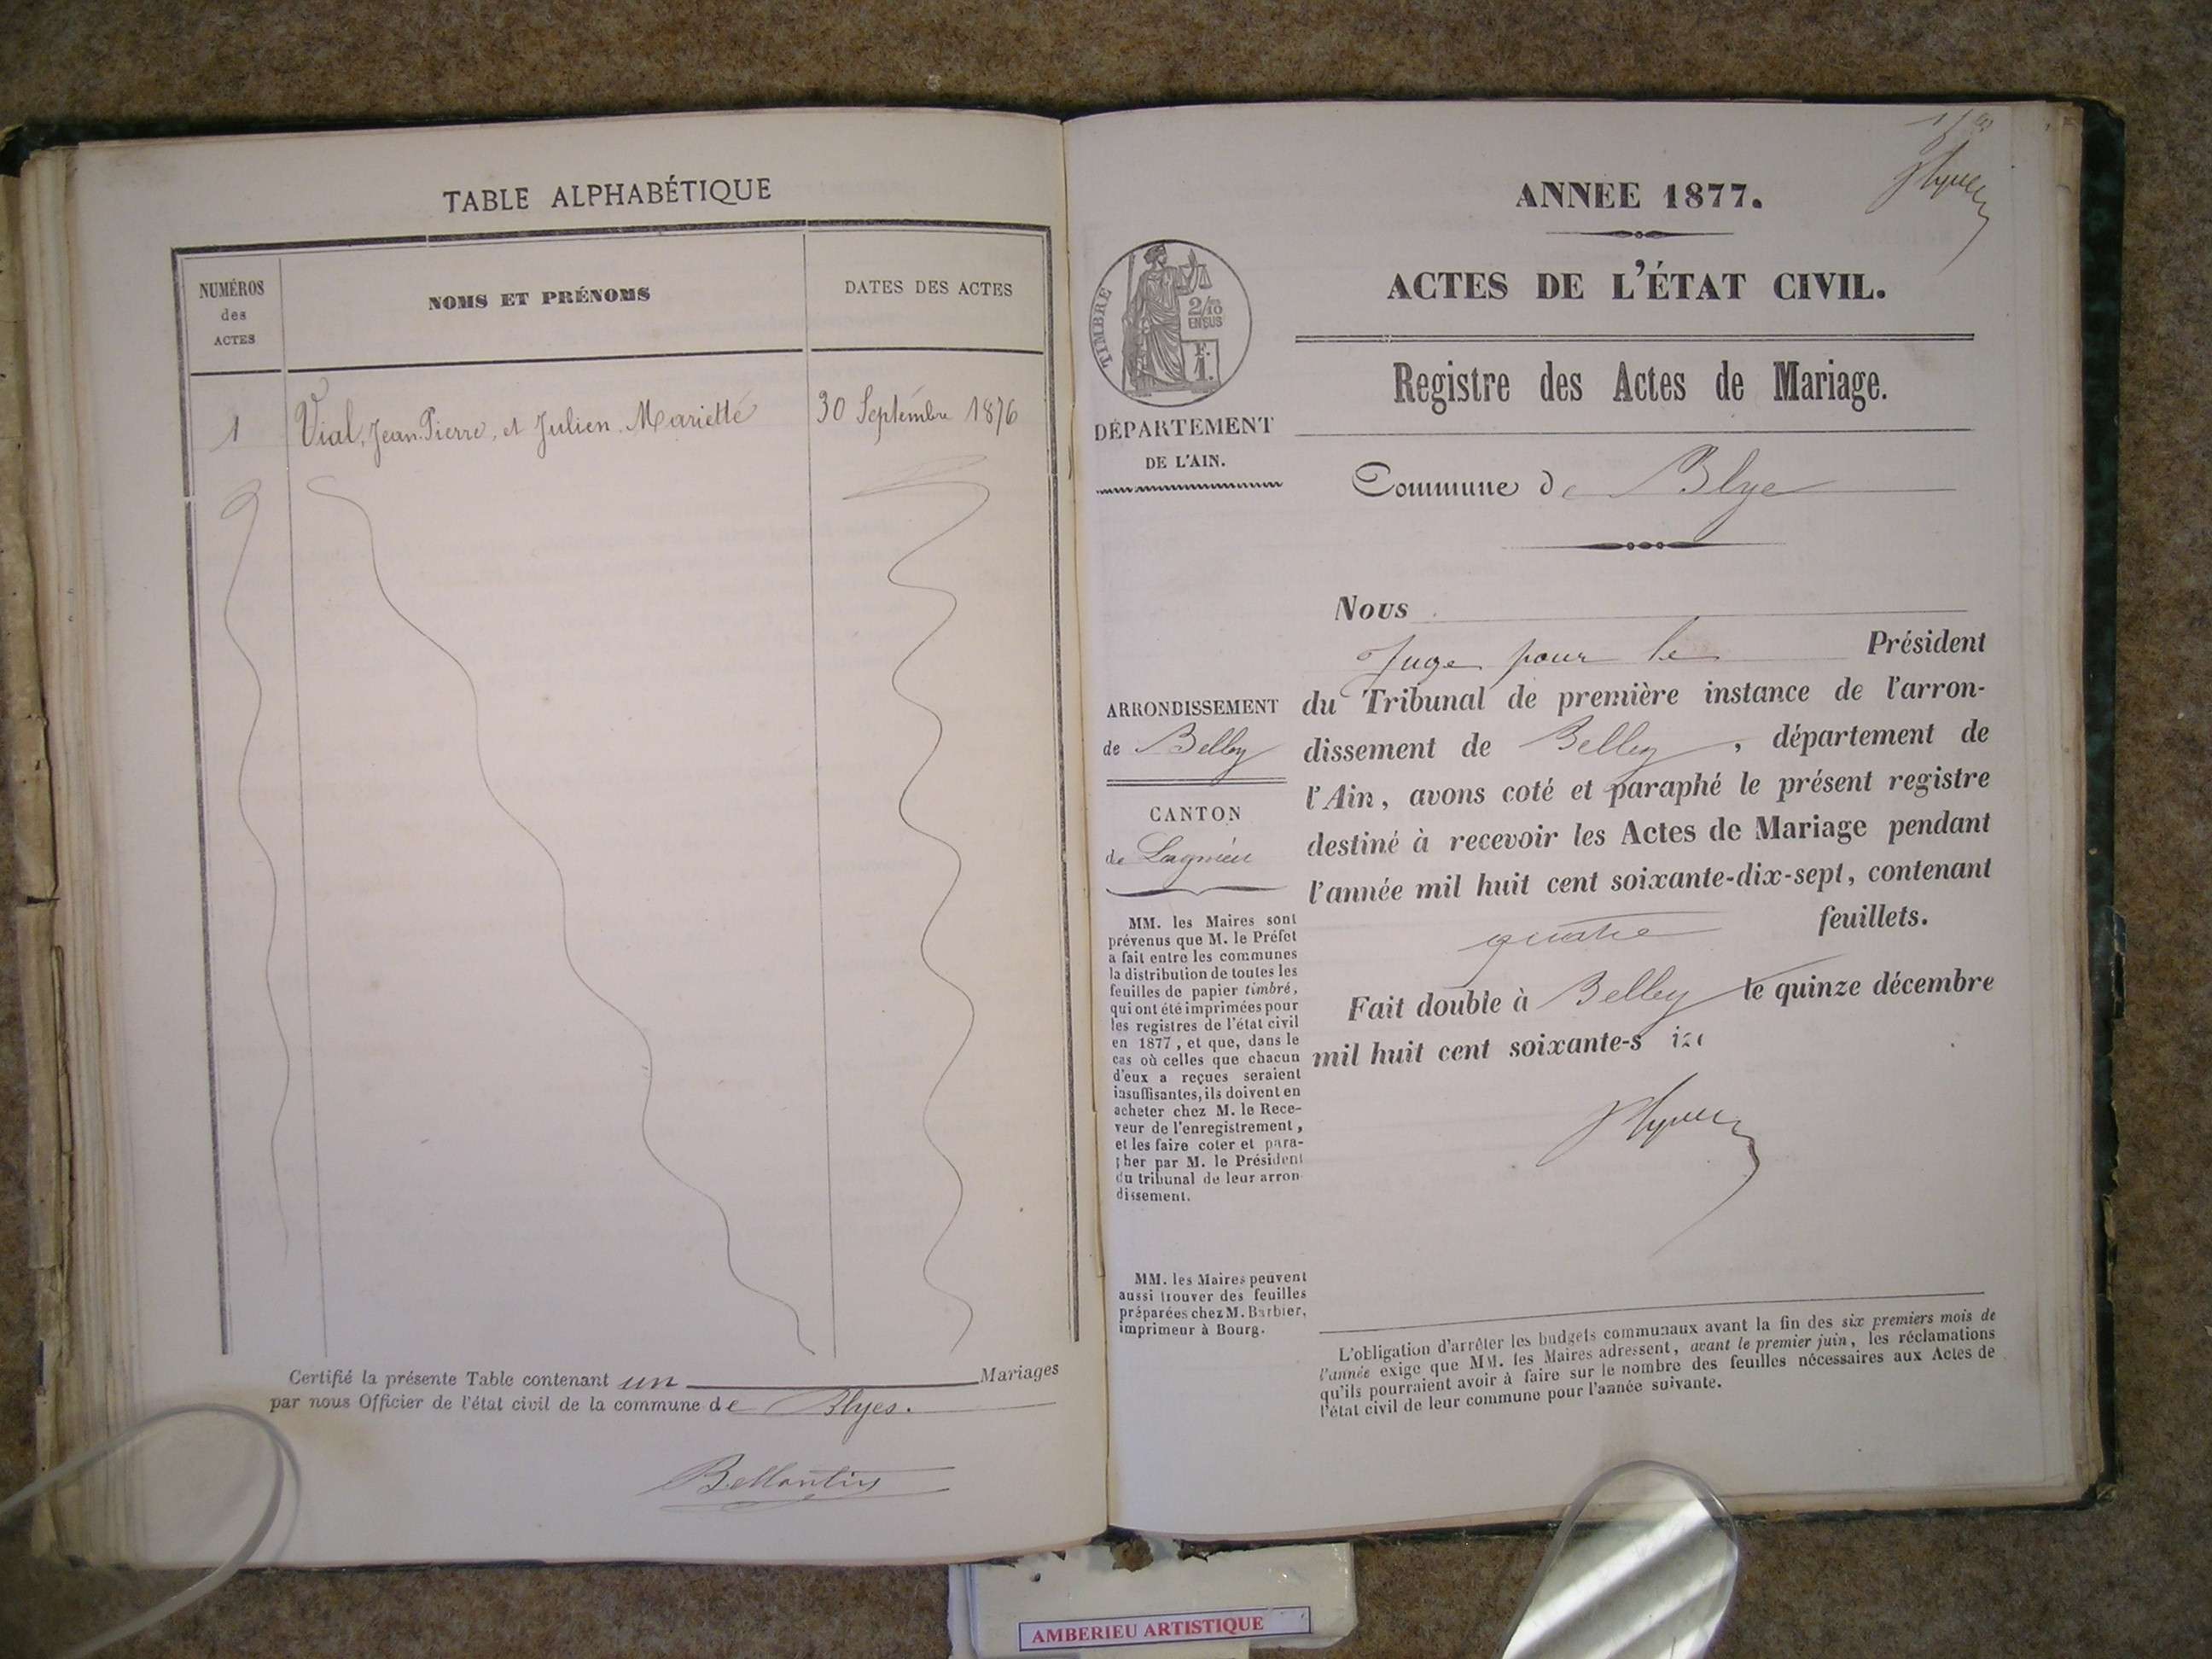 TABLE ALPHABÉTIQUE
NUMÉROS
des
ACTES
NOMS ET PRÉNOMS
DATES DES ACTES
1 Vial, Jean-Pierre, et Julien Mariette 30 Septembre 1876
Certifié la présente Table contenant un Mariages
par nous Officier de l'état civil de la commune de Blyes.
ANNEE 1877.
ACTES DE L'ÉTAT CIVIL.
Registre des Actes de Mariage.
TIMBRE
2/10
EN SUS
F.
1.
DÉPARTEMENT
DE L'AIN.
Commune de Blye
Nous
Juge pour le Président
du Tribunal de première instance de l'arron-
dissement de Belley, département de
l'Ain, avons coté et paraphé le présent registre
destiné à recevoir les Actes de Mariage pendant
l'année mil huit cent soixante-dix-sept, contenant
quatre feuillets.
Fait double à Belley le quinze décembre
mil huit cent soixante-s
ARRONDISSEMENT
de Belley
CANTON
de Lagnieu
MM. les Maires sont
prévenus que M. le Préfet
a fait entre les communes
la distribution de toutes les
feuilles de papier timbré,
qui ont été imprimées pour
les registres de l'état civil
en 1877, et que, dans le
cas où celles que chacun
d'eux a reçues seraient
insuffisantes, ils doivent en
acheter chez M. le Rece-
veur de l'enregistrement,
et les faire coter et para-
pher par M. le Président
du tribunal de leur arron-
dissement.
MM. les Maires peuvent
aussi trouver des feuilles
préparées chez M. Barbier,
imprimeur à Bourg.
L'obligation d'arrêter les budgets communaux avant la fin des six premiers mois de
l'année exige que MM. les Maires adressent, avant le premier juin, les réclamations
qu'ils pourraient avoir à faire sur le nombre des feuilles nécessaires aux Actes de
l'état civil de leur commune pour l'année suivante.
AMBERIEU ARTISTIQUE